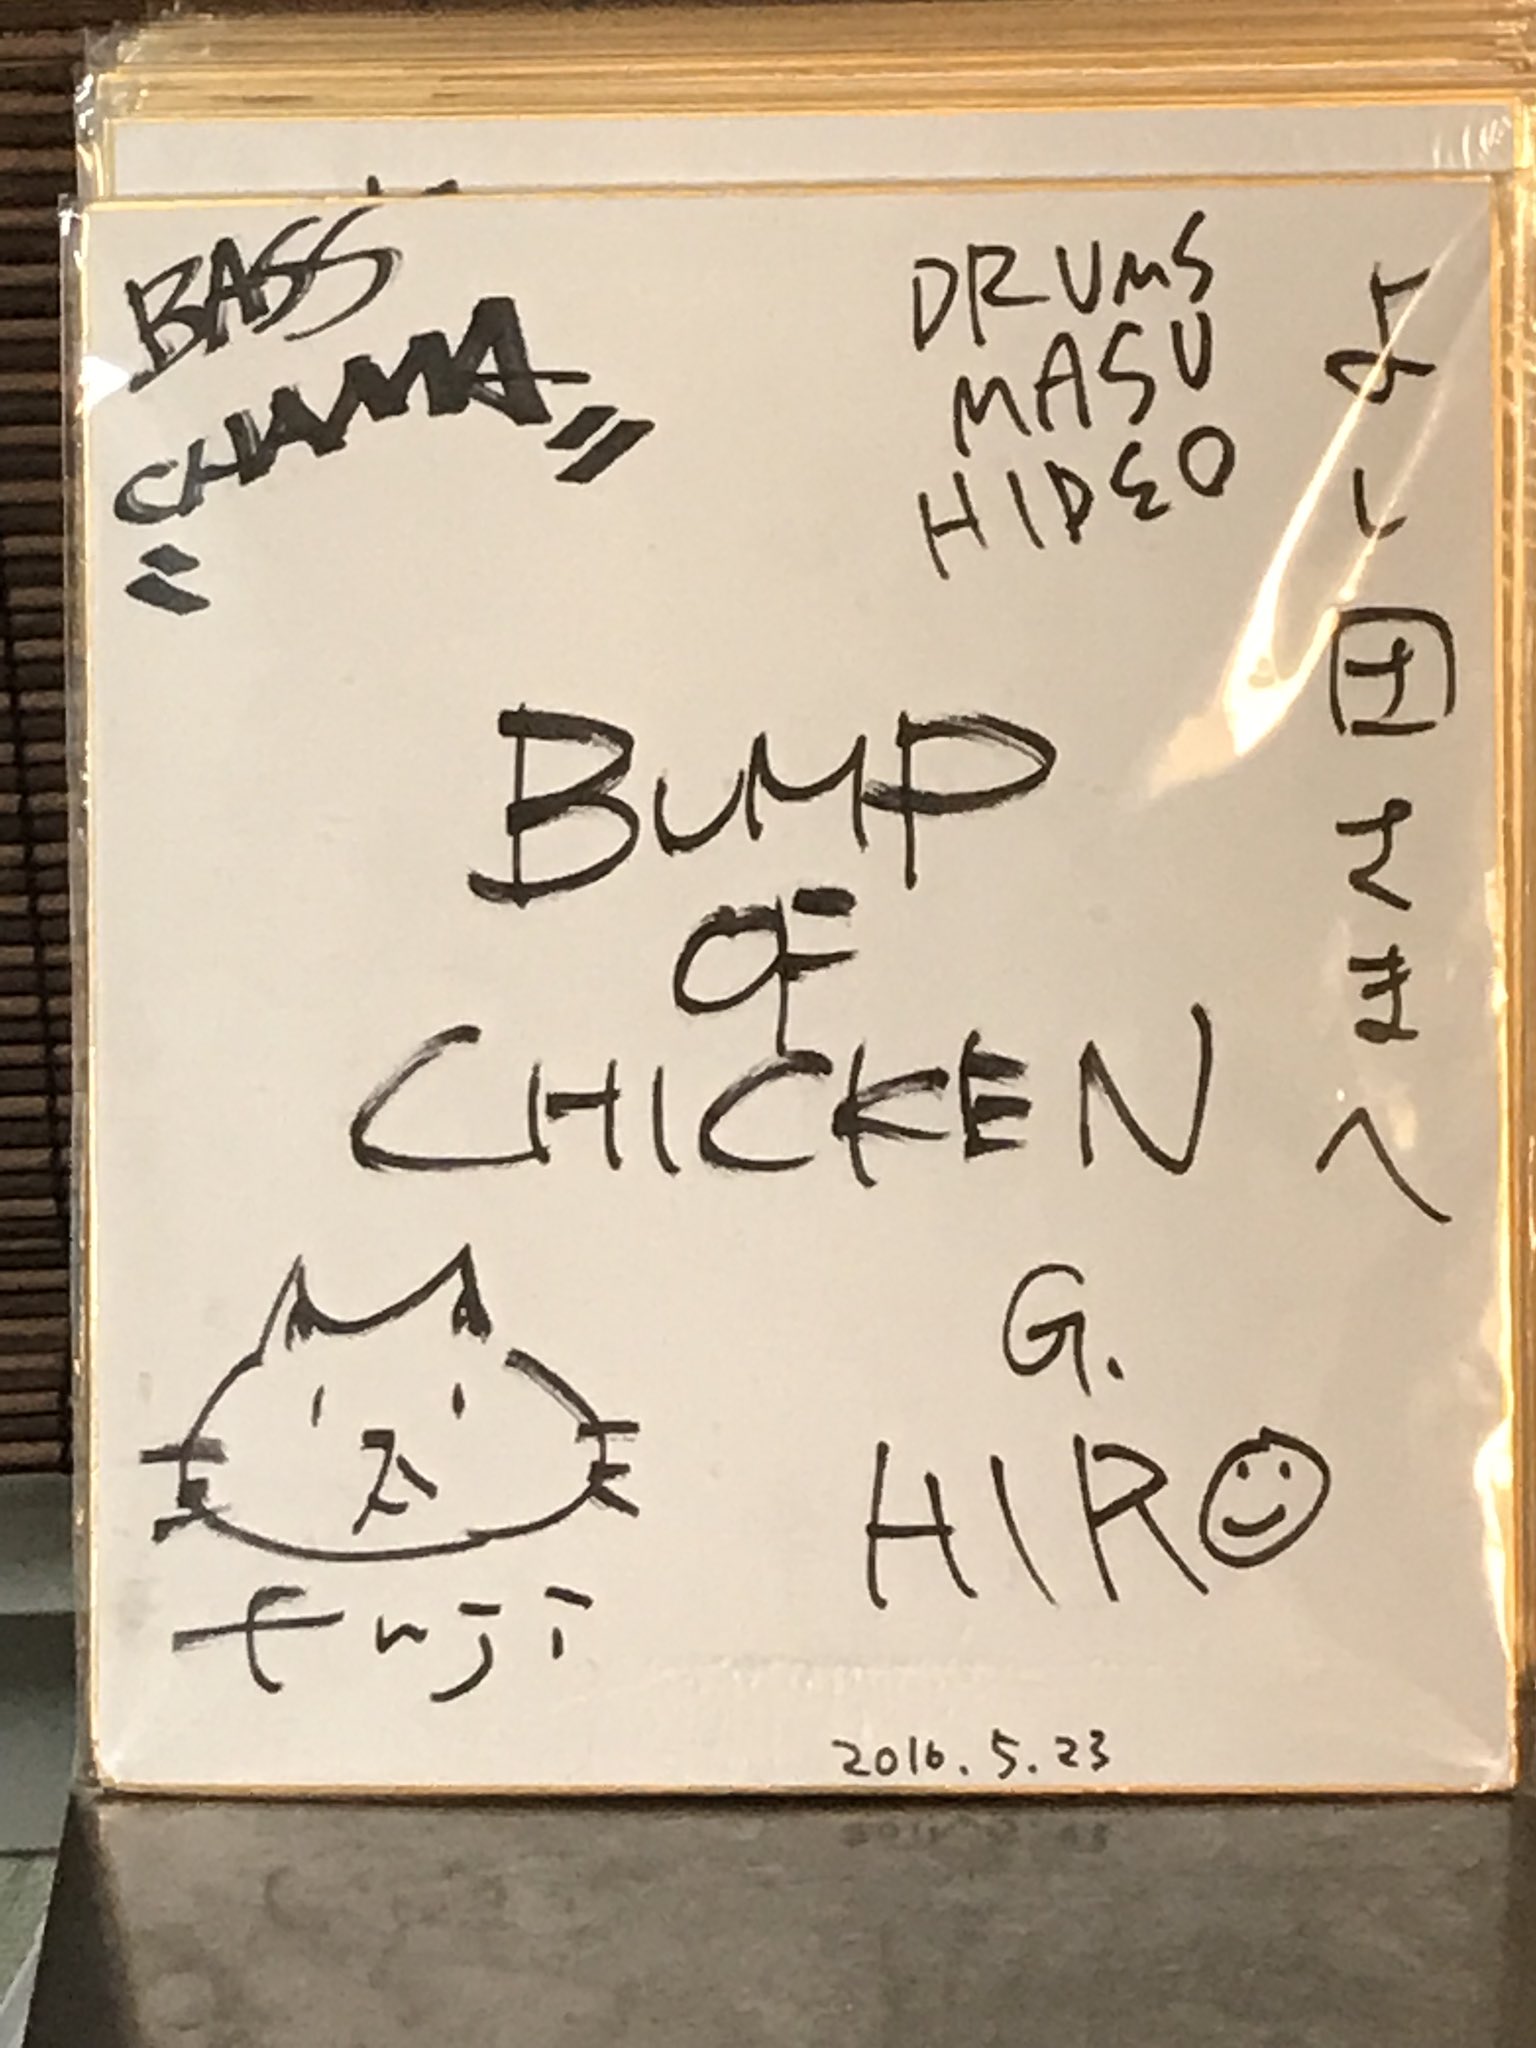 BASS
CHAMA
DRUMS
MASU
HIDEO
よし田さまへ
BUMP
OF
CHICKEN
fuji
G.
HIRO
2016.5.23